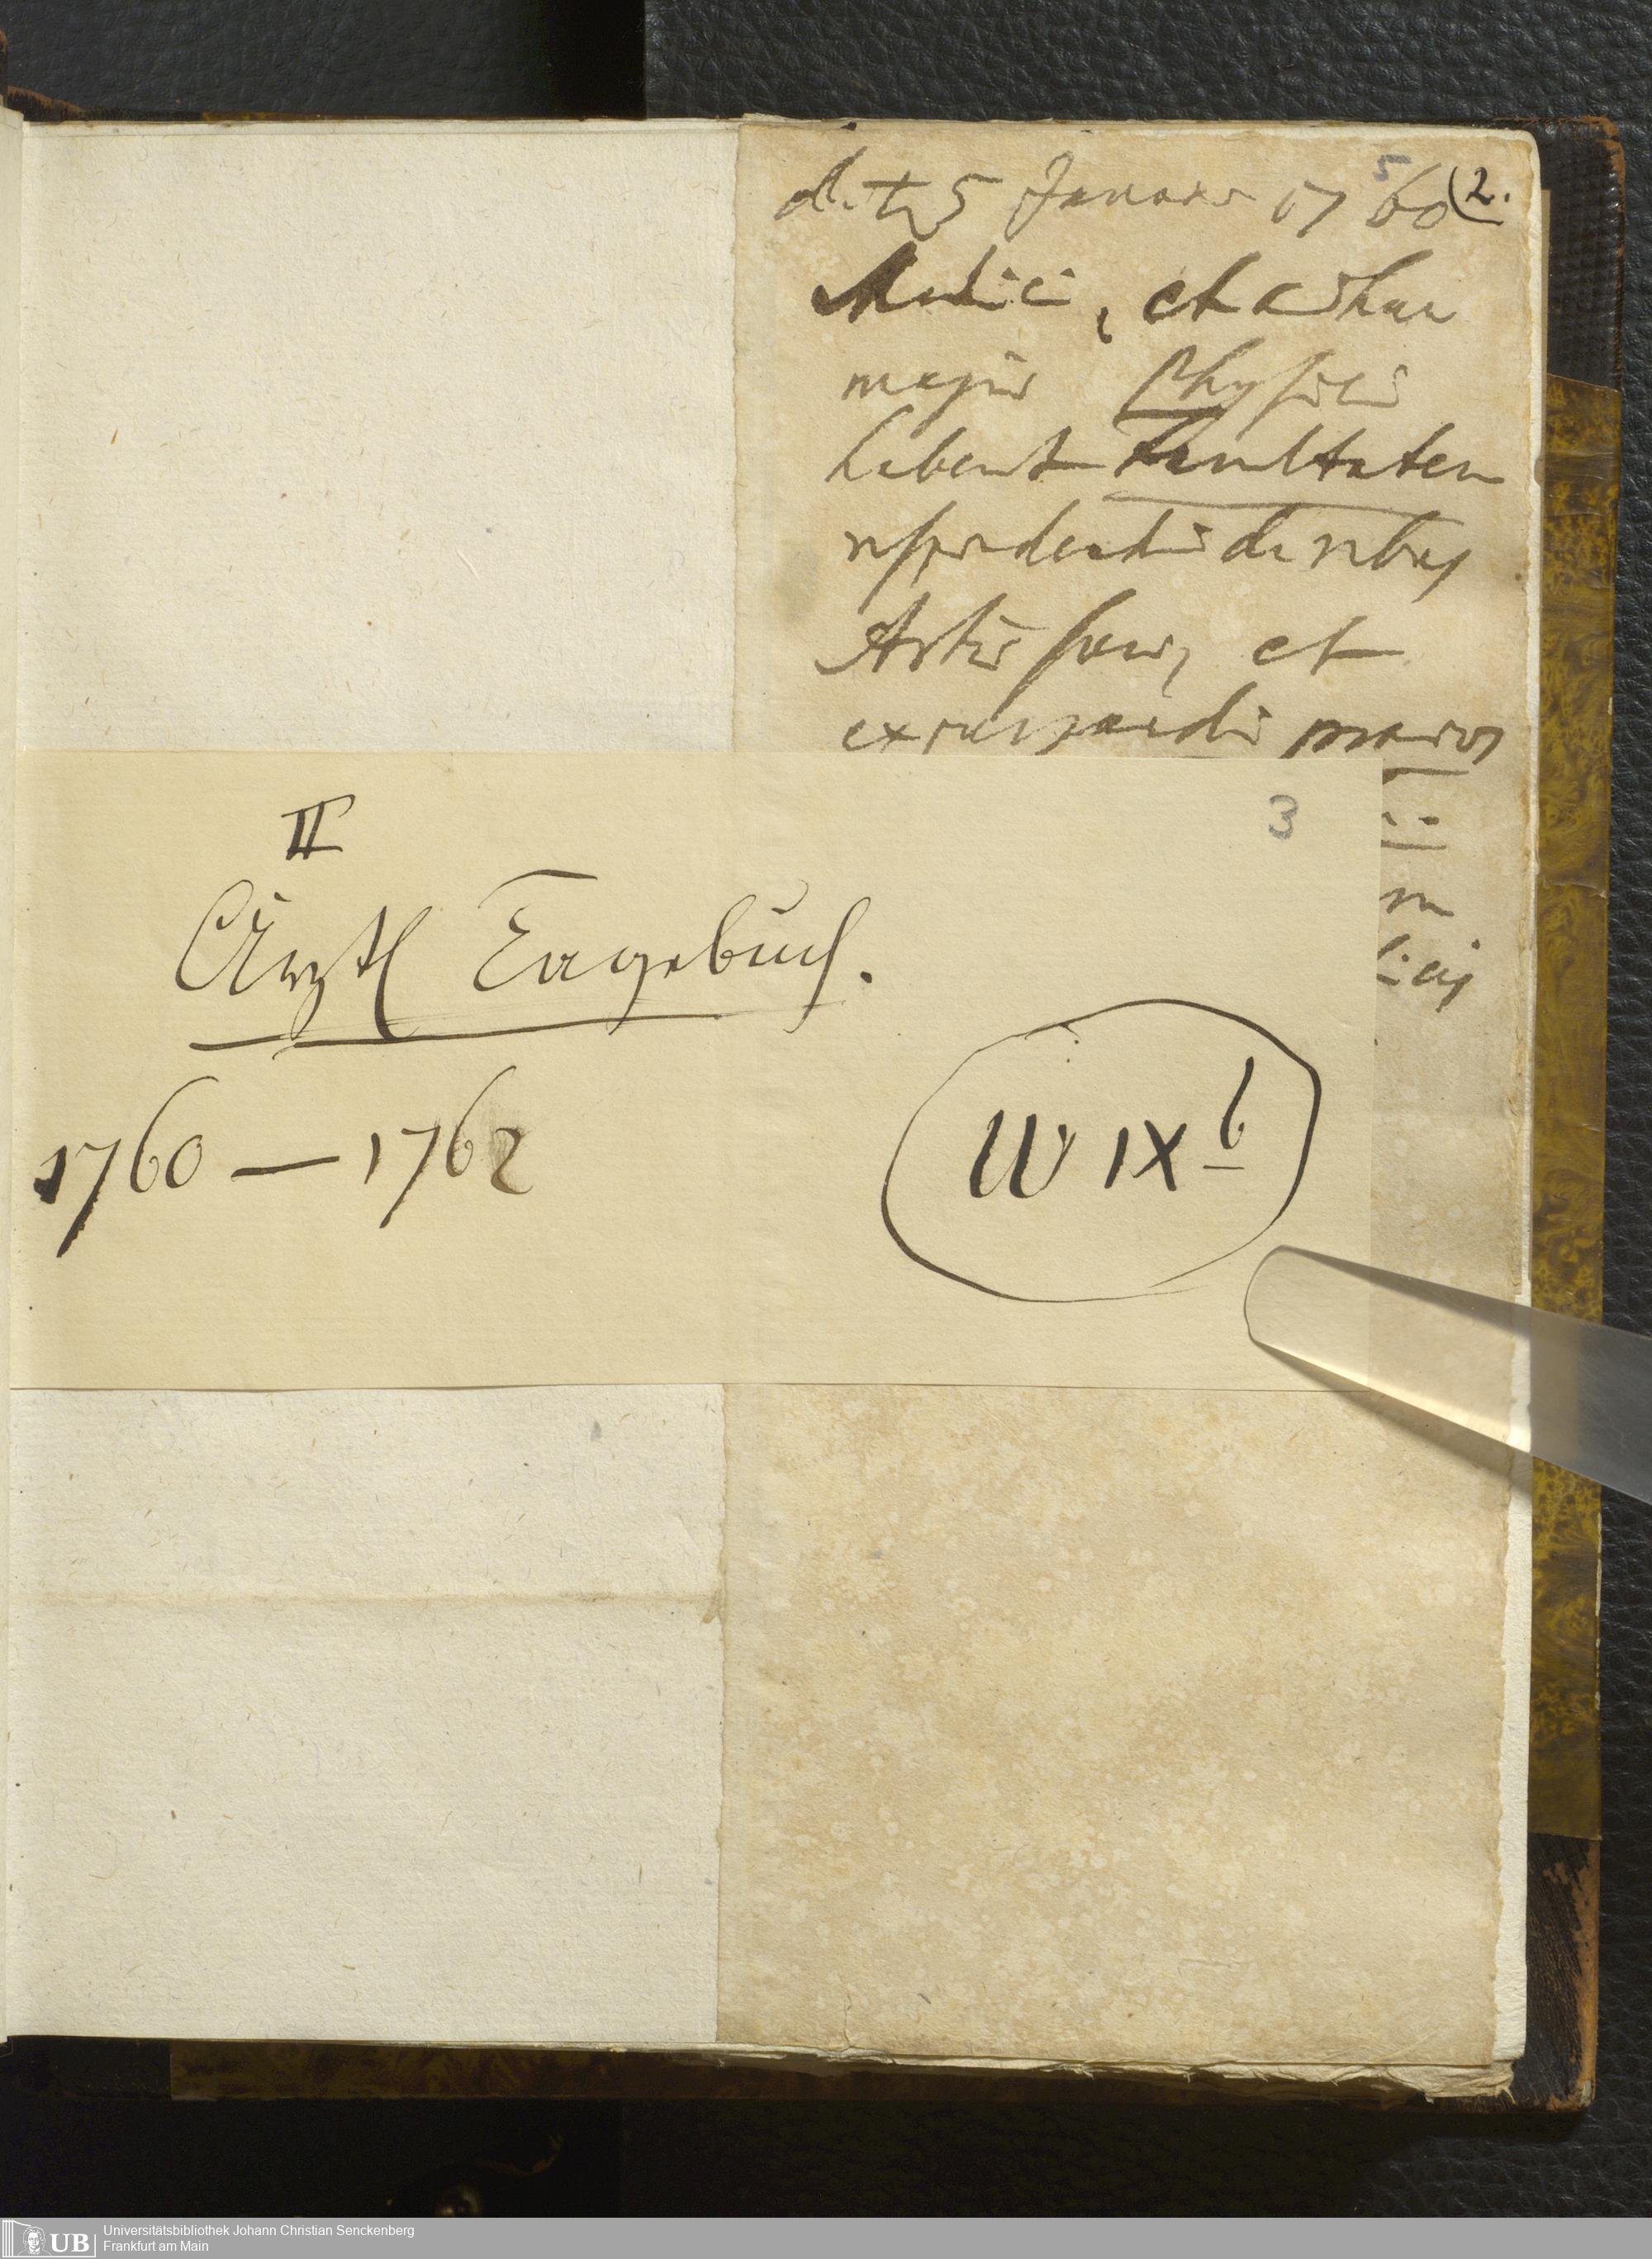 d. ♄ 5 Januar 1760
5
(2.
Medici, et adhuc
magis Physici
habent Facultatem
respondendi de rebus
Artis suae, et
examinandi
II
3
Ärztl Tagebuch.
1760 — 1762
W IX b
UB
Universitätsbibliothek Johann Christian Senckenberg
Frankfurt am Main